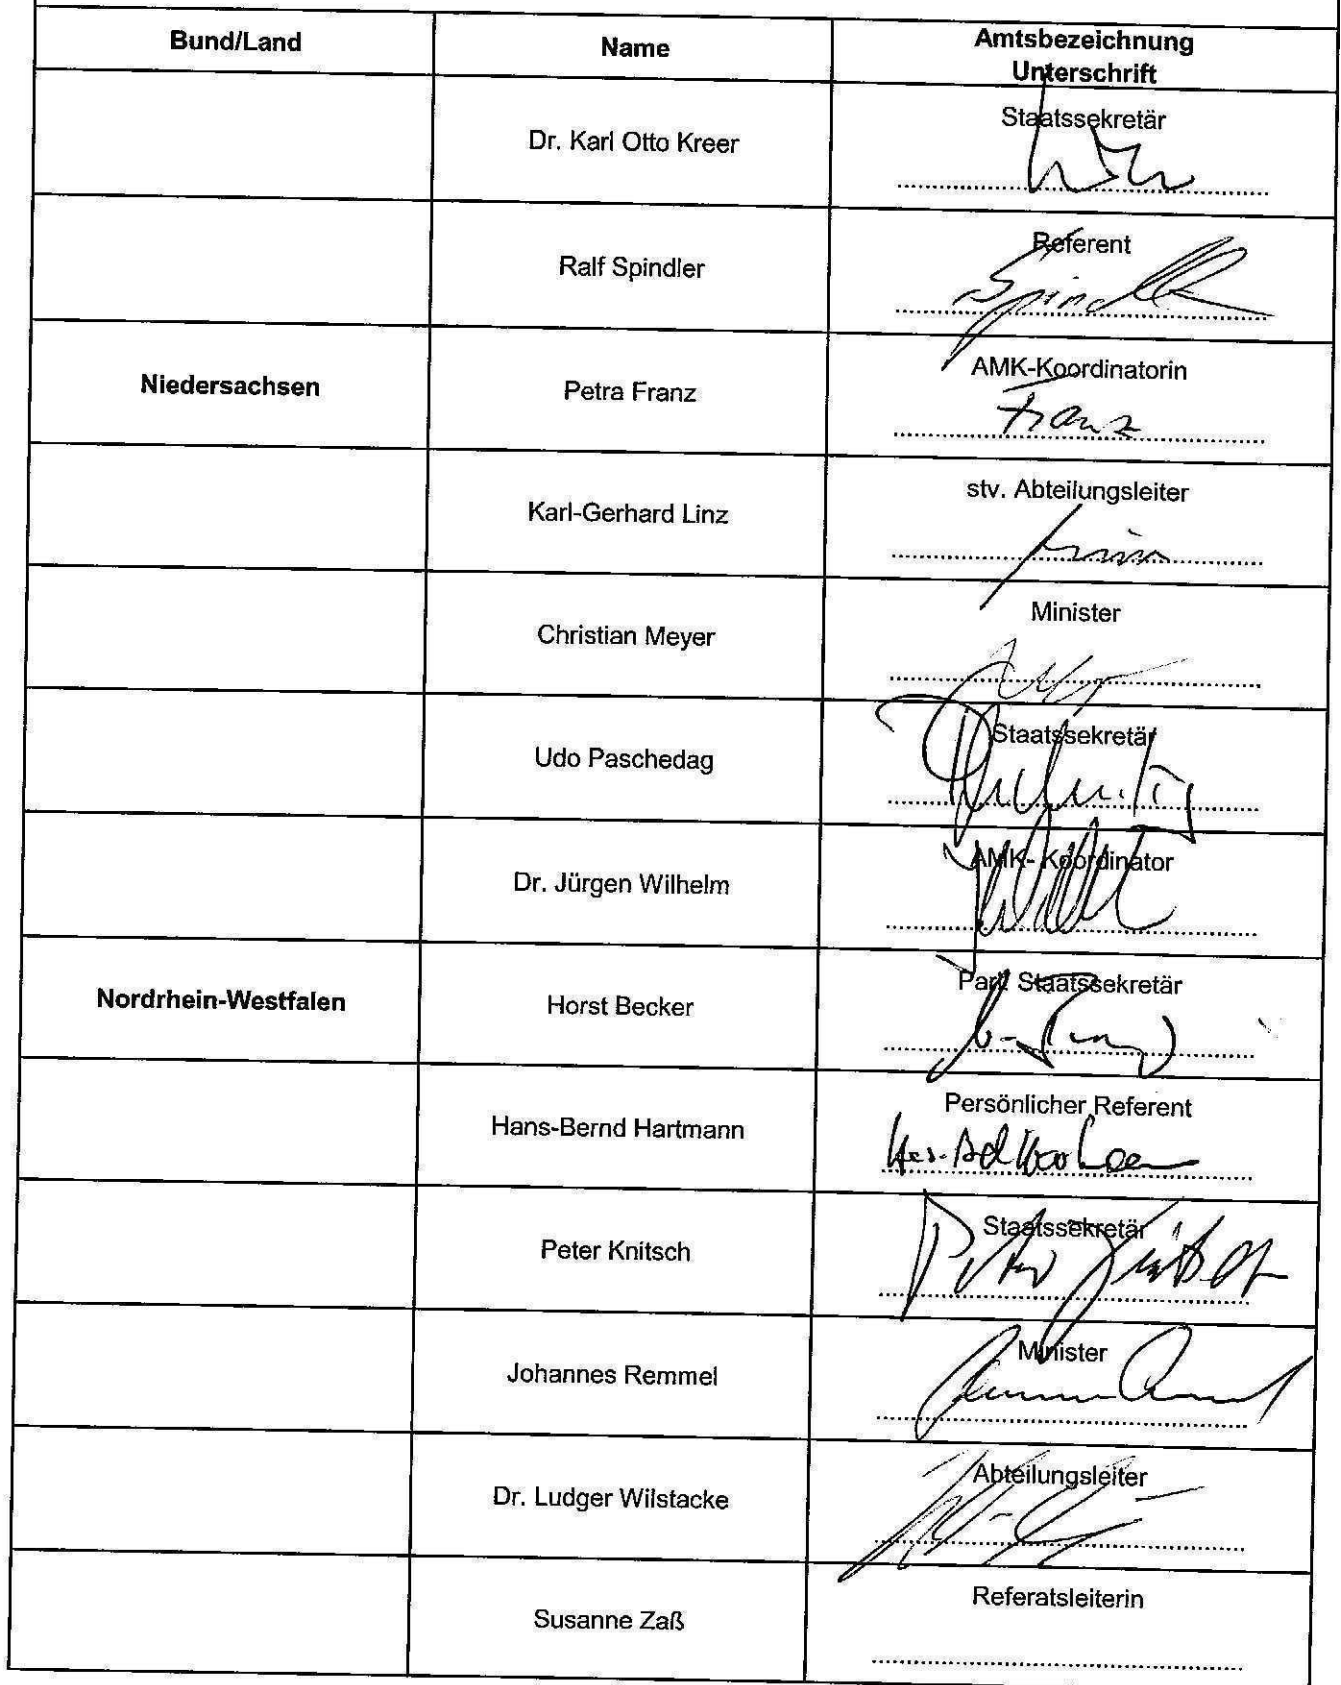 Bund/Land
Name
Amtsbezeichnung
Unterschrift
Dr. Karl Otto Kreer
Staatssekretär
Ralf Spindler
Referent
Spindler
Niedersachsen
Petra Franz
AMK-Koordinatorin
Franz
Karl-Gerhard Linz
stv. Abteilungsleiter
Christian Meyer
Minister
Udo Paschedag
Staatssekretär
Dr. Jürgen Wilhelm
AMK- Koordinator
Nordrhein-Westfalen
Horst Becker
Parl. Staatssekretär
Hans-Bernd Hartmann
Persönlicher Referent
Peter Knitsch
Staatssekretär
Peter Knitsch
Johannes Remmel
Minister
Dr. Ludger Wilstacke
Abteilungsleiter
Susanne Zaß
Referatsleiterin